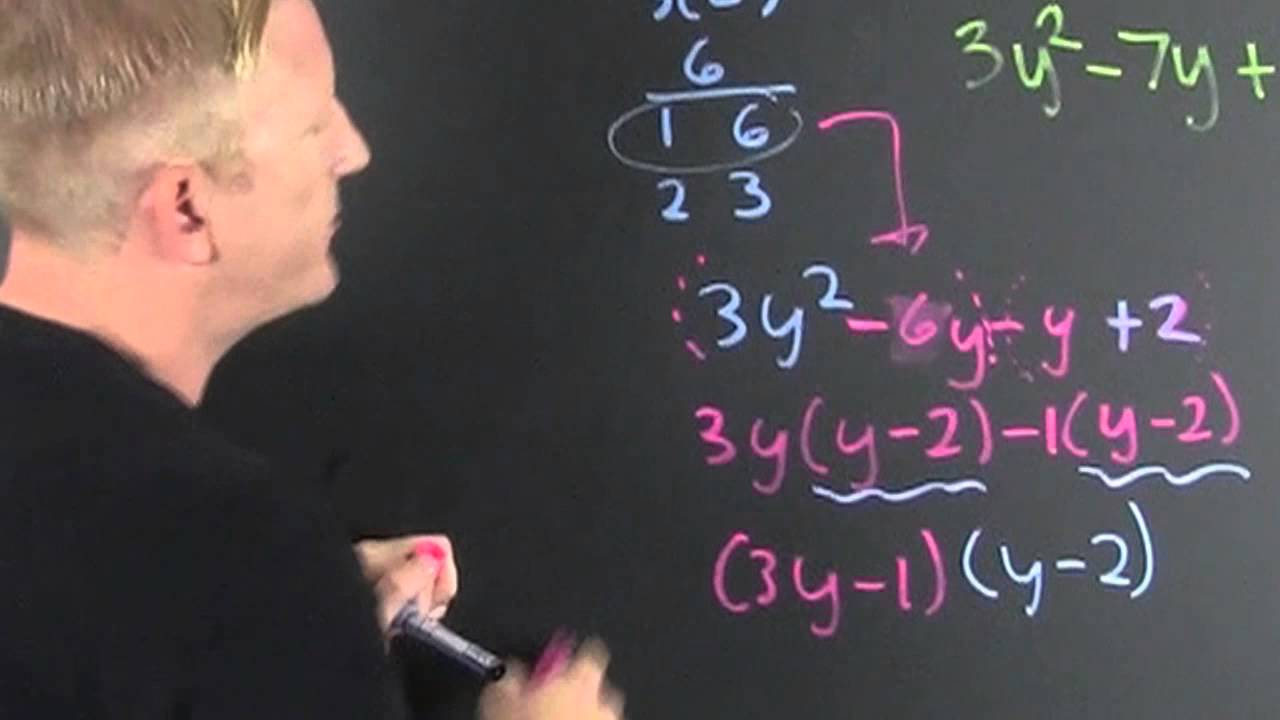 6
1 6
2 3
3y² - 7y +
3y² - 6y - y + 2
3y(y-2) - 1(y-2)
(3y-1)(y-2)